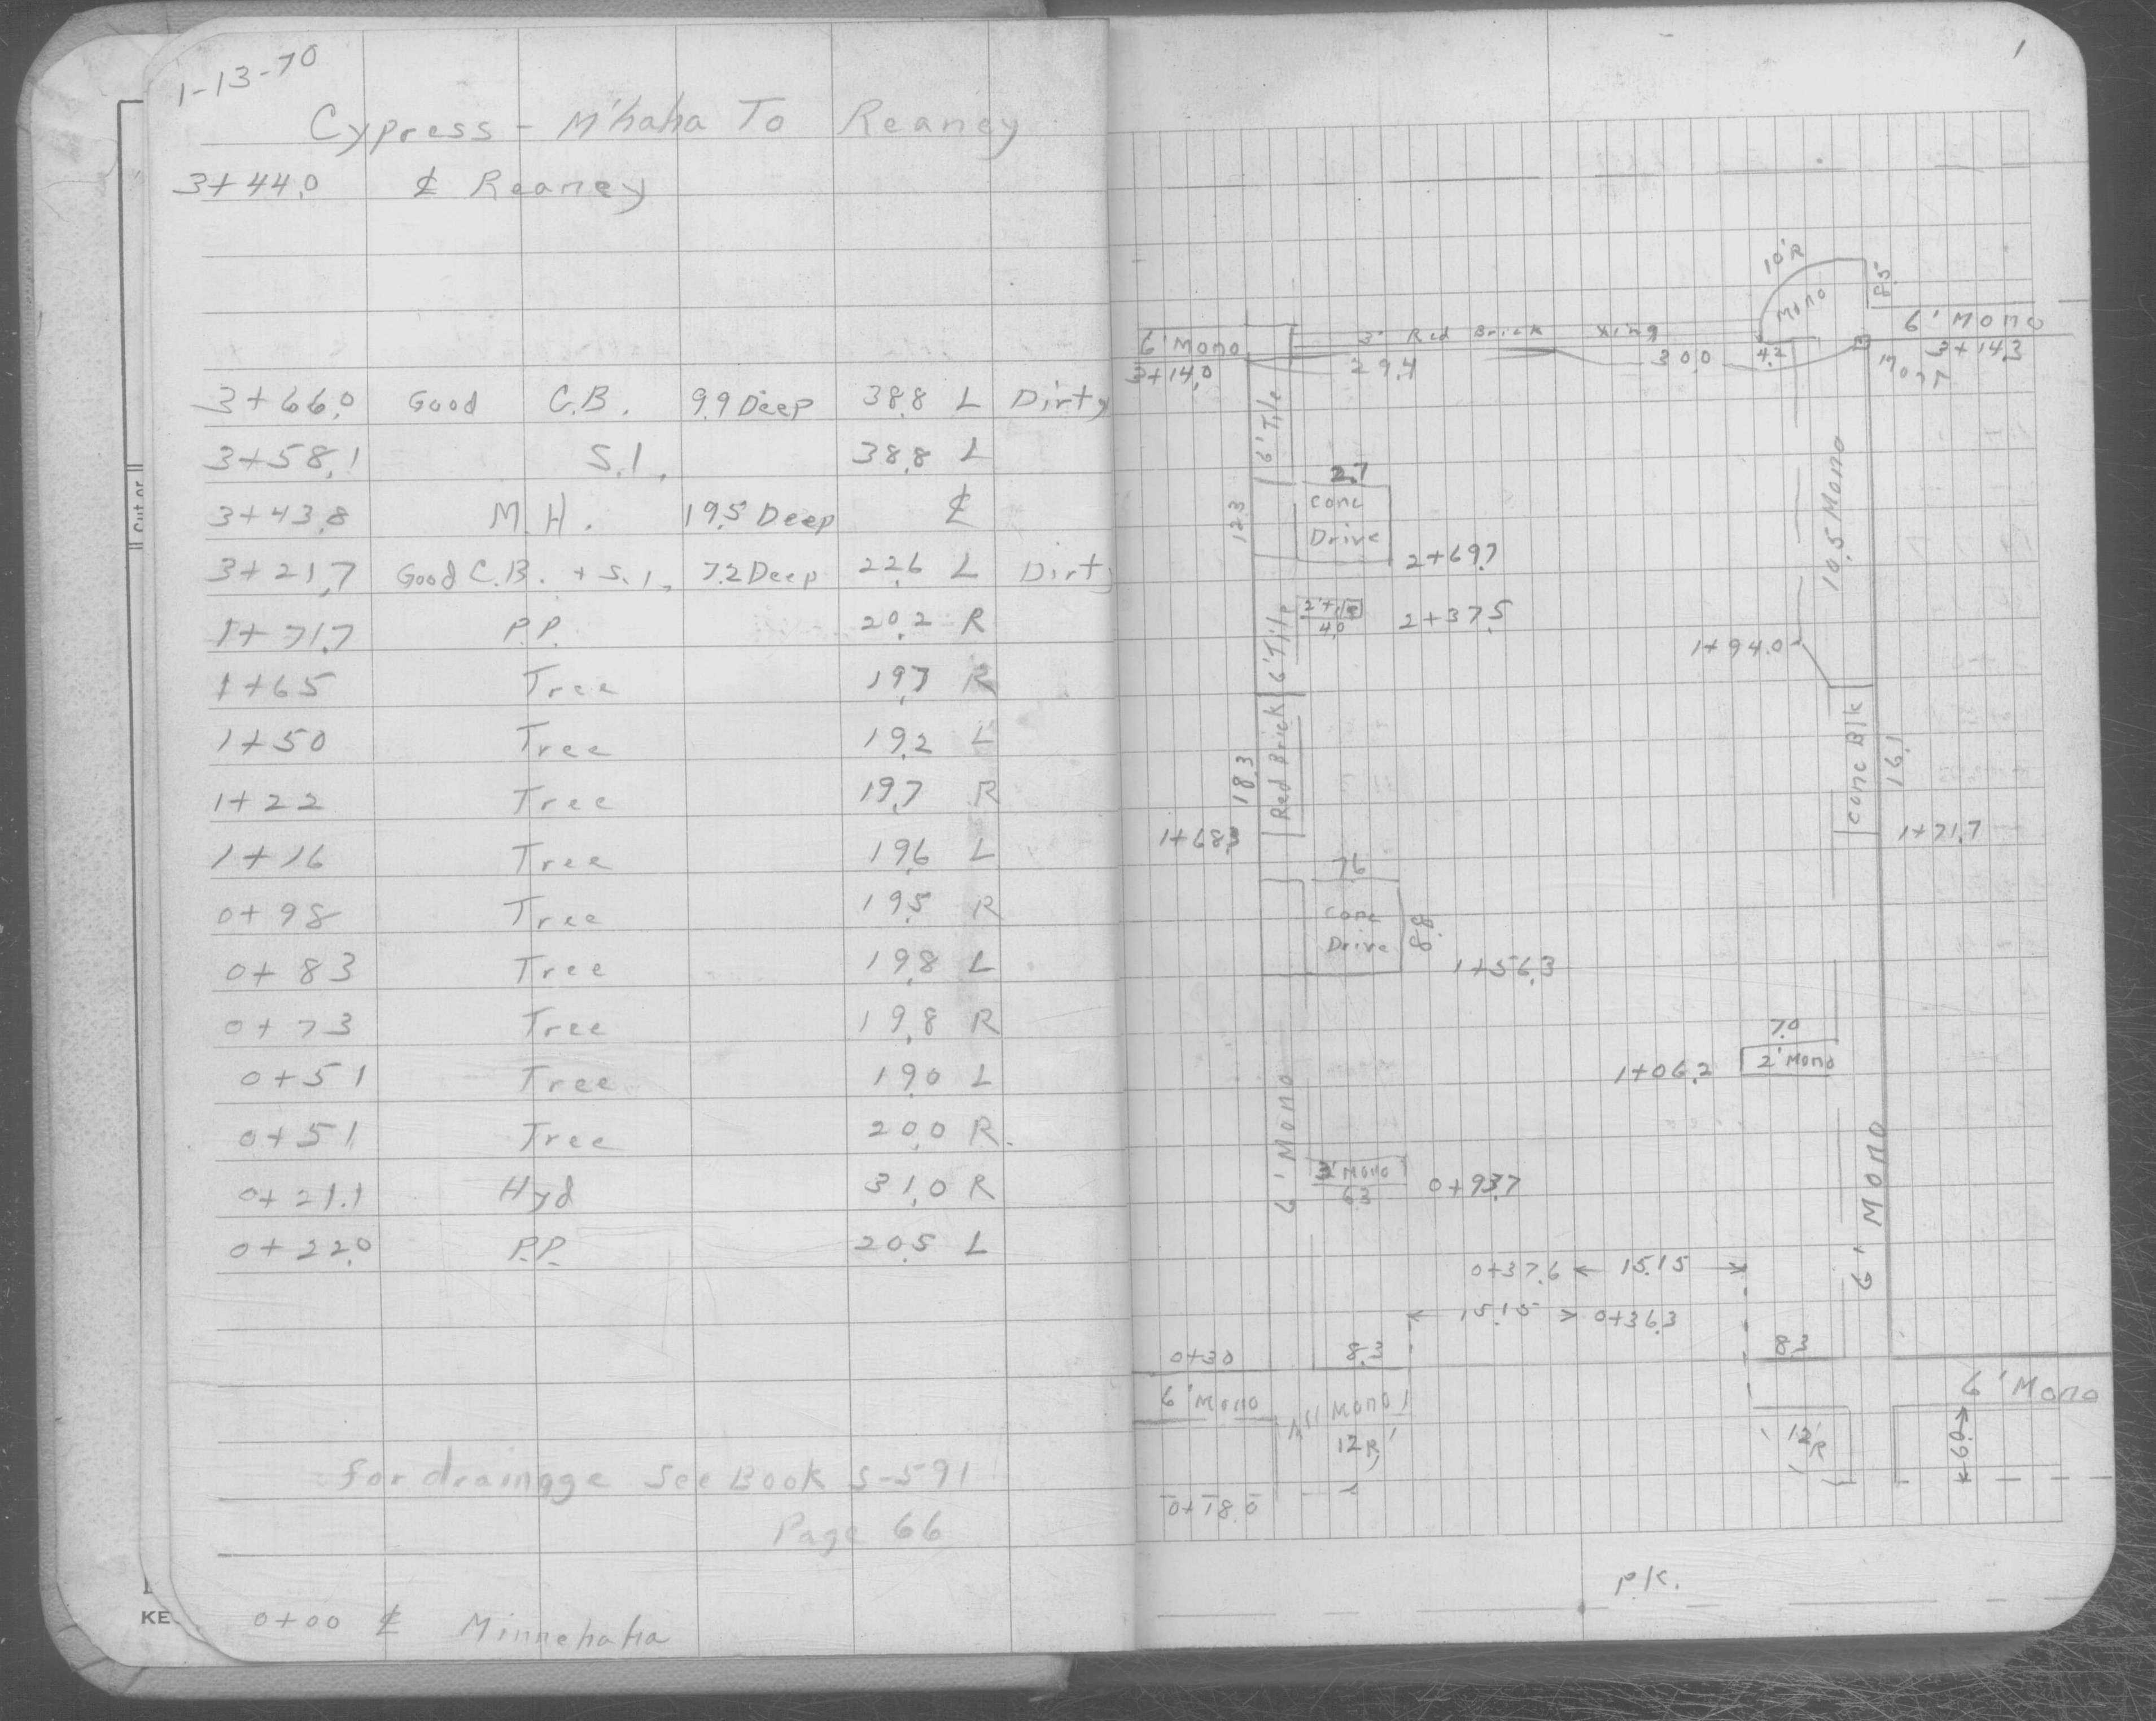 1-13-70
Cypress - M'haha To Reaney
3+44.0 ℄ Reaney
3+66.0 Good C.B. 9.9 Deep 38.8 L Dirty
3+58.1 S.I. 38.8 L
3+43.8 M.H. 19.5 Deep ℄
3+21.7 Good C.B. + S.I. 7.2 Deep 22.6 L Dirty
1+71.7 P.P. 20.2 R
1+65 Tree 19.7 R
1+50 Tree 19.2 L
1+22 Tree 19.7 R
1+16 Tree 19.6 L
0+98 Tree 19.5 R
0+83 Tree 19.8 L
0+73 Tree 19.8 R
0+51 Tree 19.0 L
0+51 Tree 20.0 R.
0+21.1 Hyd 31.0 R
0+22.0 P.P. 20.5 L
for drainage See Book S-591
Page 66
0+00 ℄ Minnehaha
KE
1
10'R
Mono
8.5
6' Mono
3' Red Brick Xing
6' Mono
3+14.0
29.4
30.0
4.2
3+14.3
6' Tile
2.7
Conc
Drive
12.3
2+69.7
10.5 Mono
2+37.5
4.0
6' Tile
1+94.0
Red Brick
18.3
1+68.3
Conc Blk
16.1
1+71.7
7.6
Conc
Drive
8.8
1+56.3
7.0
2' Mono
1+06.2
6' Mono
6.3
0+93.7
6' Mono
0+37.6 ← 15.15 →
← 15.15 > 0+36.3
0+30
8.3
8.3
6' Mono
All Mono
12'R
12'R
6' Mono
6.0
0+18.0
P.K.